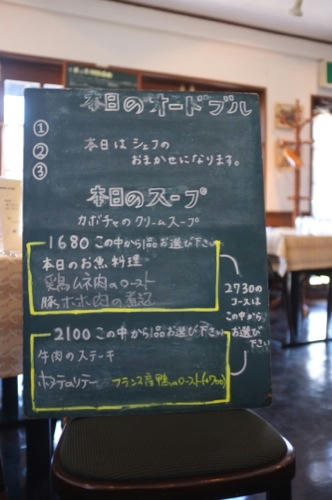 本日のオードブル
①
②
③
本日はシェフの
おまかせになります。
本日のスープ
カボチャのクリームスープ
1680 この中から1品お選び下さい
本日のお魚料理
鶏ムネ肉のロースト
豚ホホ肉の煮込
2730の
コースは
この中から
お選び
下さい
2100 この中から1品お選び下さい
牛肉のステーキ
フランス産鴨のロースト(+700)